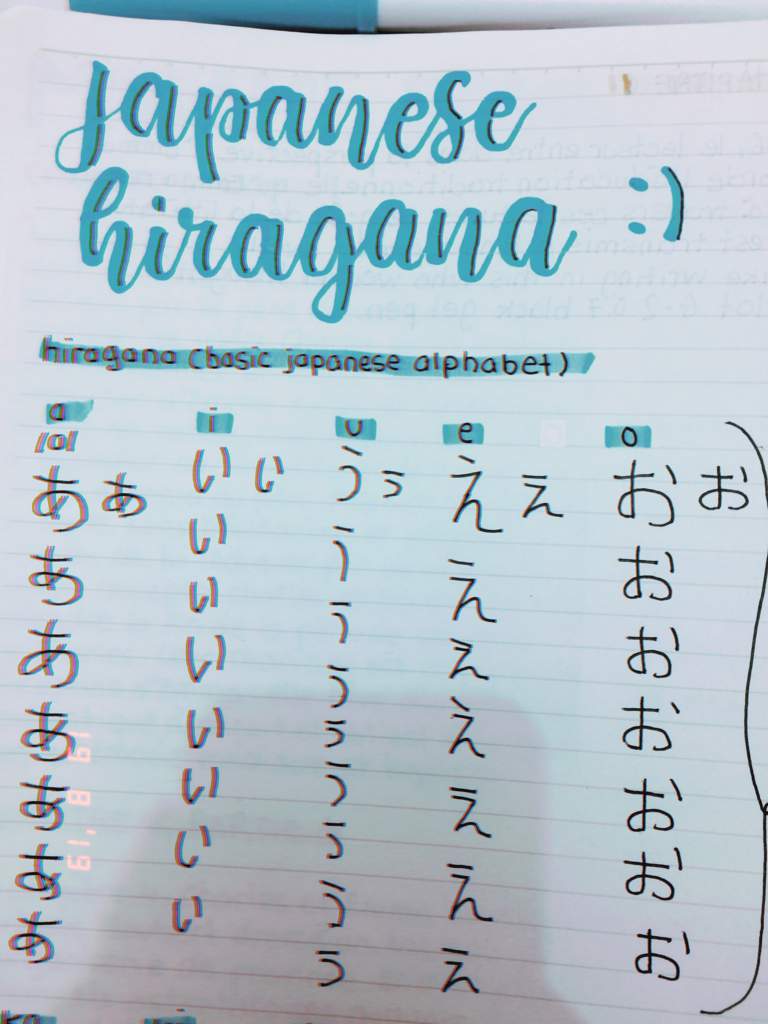 Japanese
hiragana :)
hiragana (basic japanese alphabet)
a i u e o
/a/
あ あ い い う う え え お お
あ い う え お
あ い う え お
あ い う え お
あ い う え お
あ い う え お
あ い う え お
い う
う